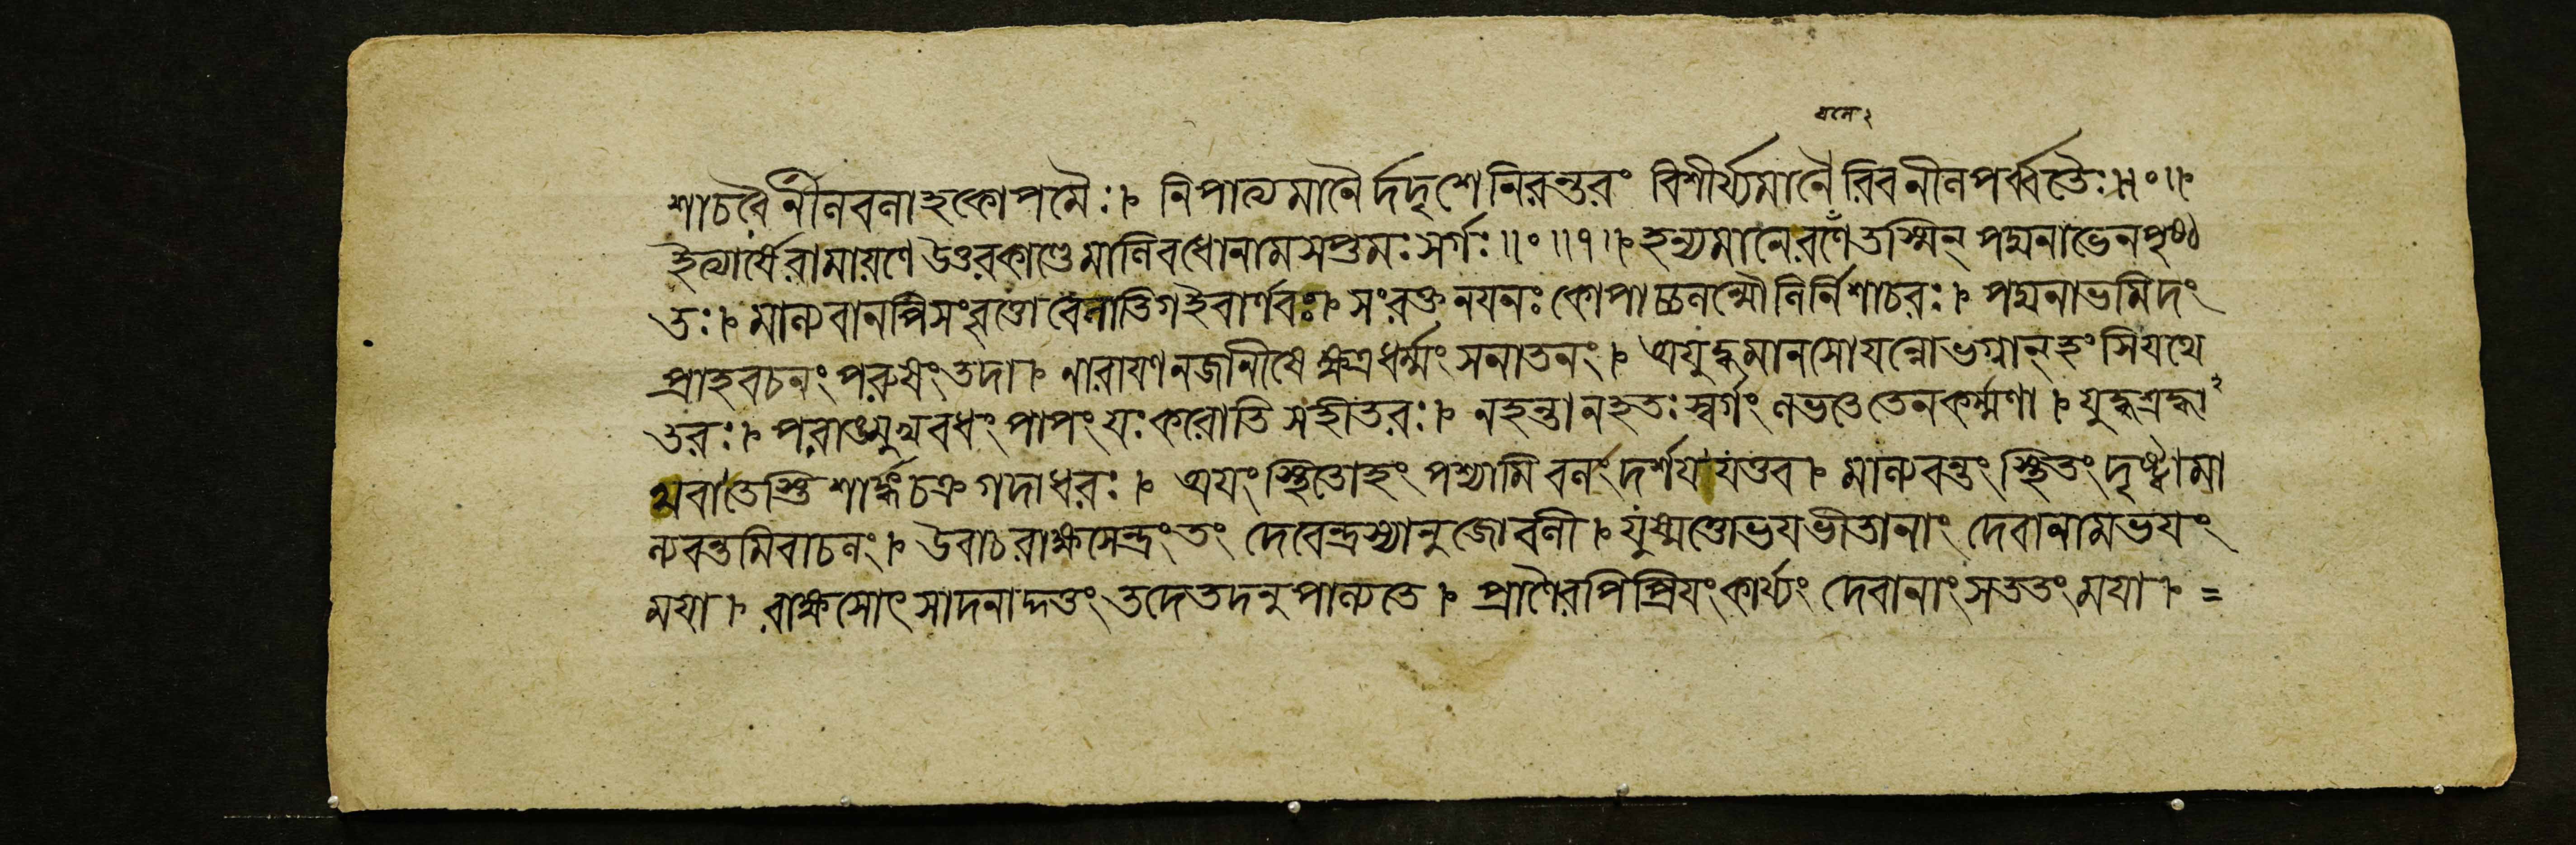 বলে২
শাচরৈর্নীলবলাহকোপমৈঃ। নিপাত্যমানৈর্দদৃশেনিরন্তরং বিশীর্য্যমানৈরিবনীলপর্ব্বতৈঃ॥॰॥
ইত্যার্ষেরামায়ণে উত্তরকাণ্ডেমালিবধোনামসপ্তমঃসর্গঃ॥॰॥৭॥ হন্যমানেবলেতস্মিন্ পদ্মনাভেনপৃষ্ঠ
তঃ। মাল্যবানপিসংবৃত্তোবেলাতিগইবার্ণবঃ। সংরক্তনয়নঃকোপাচ্চলন্মৌলির্নিশাচরঃ। পদ্মনাভমিদং
প্রাহবচনংপরুষংতদা। নারায়ণনজানীষে ক্ষত্রধর্ম্মংসনাতনং। অযুদ্ধমানসোযন্নোভগ্নান্হংসিযথে
তরঃ। পরাঙ্মুখবধংপাপংযঃকরোতিসহীতরঃ। নহন্তানহতঃস্বর্গংলভতেতেনকর্ম্মণা। যুদ্ধশ্রদ্ধা২
থবাতেস্তিশার্ঙ্গচক্রগদাধরঃ। অয়ংস্থিতোহংপশ্যামিবলংদর্শযযত্তব। মাল্যবন্তংস্থিতংদৃষ্ট্বামা
ল্যবন্তমিবাচলং। উবাচরাক্ষসেন্দ্রংতং দেবেন্দ্রস্যানুজোবলী। যুষ্মত্তোভয়ভীতানাং দেবানামভয়ং
ময়া। রাক্ষসোৎসাদনাদ্দত্তং তদেতদনুপাল্যতে। প্রাণৈরপিপ্রিয়ংকার্য্যং দেবানাংসততংময়া। =